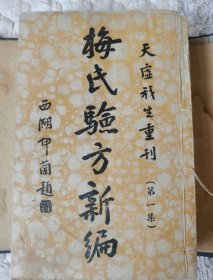 天虚我生重刊
(第一集)
梅氏驗方新編
西湖伊蘭題